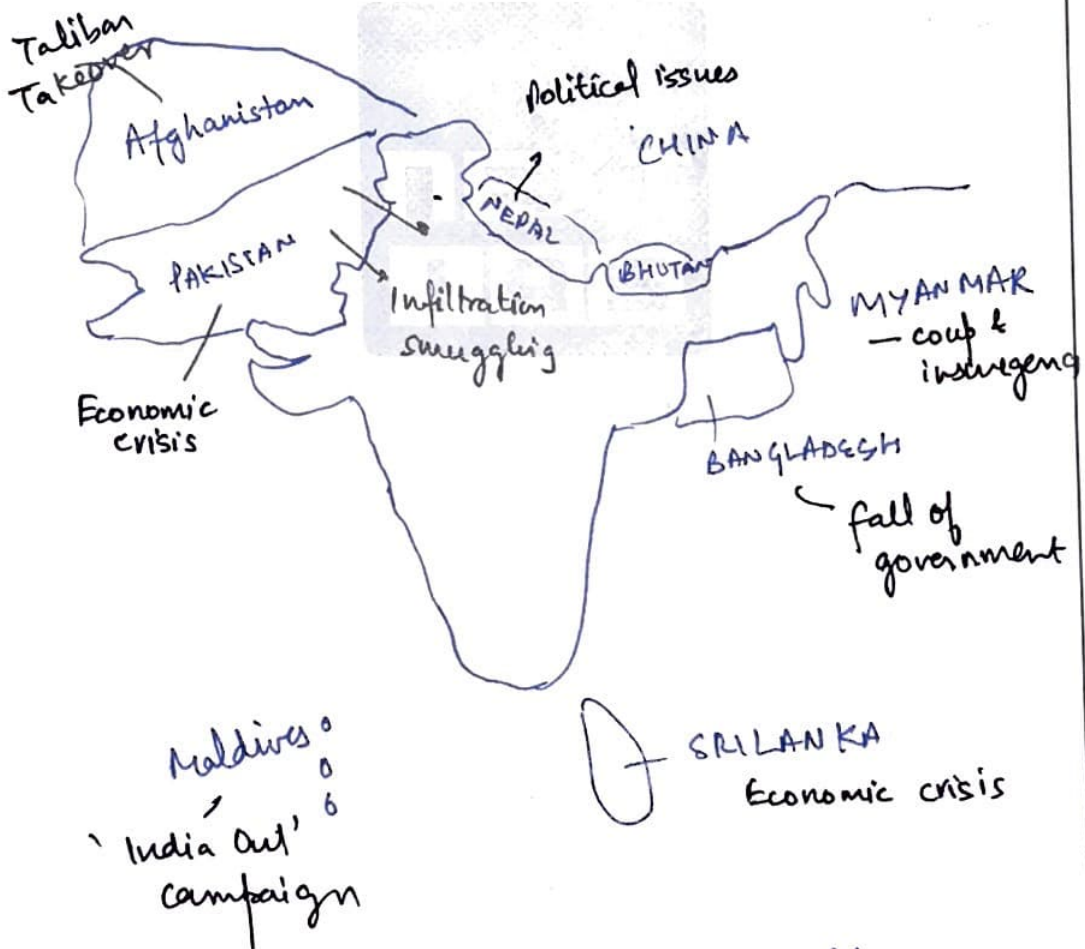 Taliban
Takeover
Afghanistan
Political issues
CHINA
NEPAL
PAKISTAN
BHUTAN
Infiltration
smuggling
MYANMAR
– coup &
insurgenc
Economic
crisis
BANGLADESH
fall of
government
Maldives
'India Out'
campaign
SRILANKA
Economic crisis